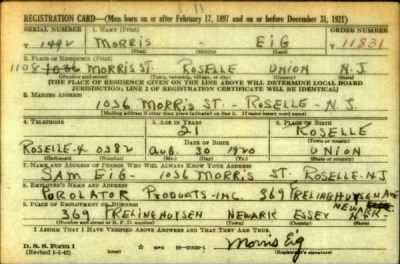 REGISTRATION CARD—(Men born on or after February 17, 1897 and on or before December 31, 1921)
SERIAL NUMBER 1. NAME (Print) ORDER NUMBER
T 1492 MORRIS EIG T 11831
(First) (Middle) (Last)
2. PLACE OF RESIDENCE (Print)
1108 1036 MORRIS ST. ROSELLE UNION N.J.
(Number and street) (Town, township, village, or city) (County) (State)
[THE PLACE OF RESIDENCE GIVEN ON THE LINE ABOVE WILL DETERMINE LOCAL BOARD
JURISDICTION; LINE 2 OF REGISTRATION CERTIFICATE WILL BE IDENTICAL]
3. MAILING ADDRESS
1036 MORRIS ST. - ROSELLE - N.J.
[Mailing address if other than place indicated on line 2. If same insert word same]
4. TELEPHONE 5. AGE IN YEARS 6. PLACE OF BIRTH
21 ROSELLE
DATE OF BIRTH (Town or county)
ROSELLE-4 0382 AUG. 30 1920 UNION
(Exchange) (Number) (Mo.) (Day) (Yr.) (State or country)
7. NAME AND ADDRESS OF PERSON WHO WILL ALWAYS KNOW YOUR ADDRESS
SAM EIG - 1036 MORRIS ST. ROSELLE-N.J
8. EMPLOYER'S NAME AND ADDRESS
POROLATOR PRODUCTS-INC. 369 FRELINGHUYSEN AVE
NEWARK
9. PLACE OF EMPLOYMENT OR BUSINESS
369 FRELINGHUYSEN NEWARK ESSEX N.J.
(Number and street or R. F. D. number) (Town) (County) (State)
I AFFIRM THAT I HAVE VERIFIED ABOVE ANSWERS AND THAT THEY ARE TRUE.
D. S. S. Form 1
(Revised 1-1-42)
Morris Eig
(Registrant's signature)